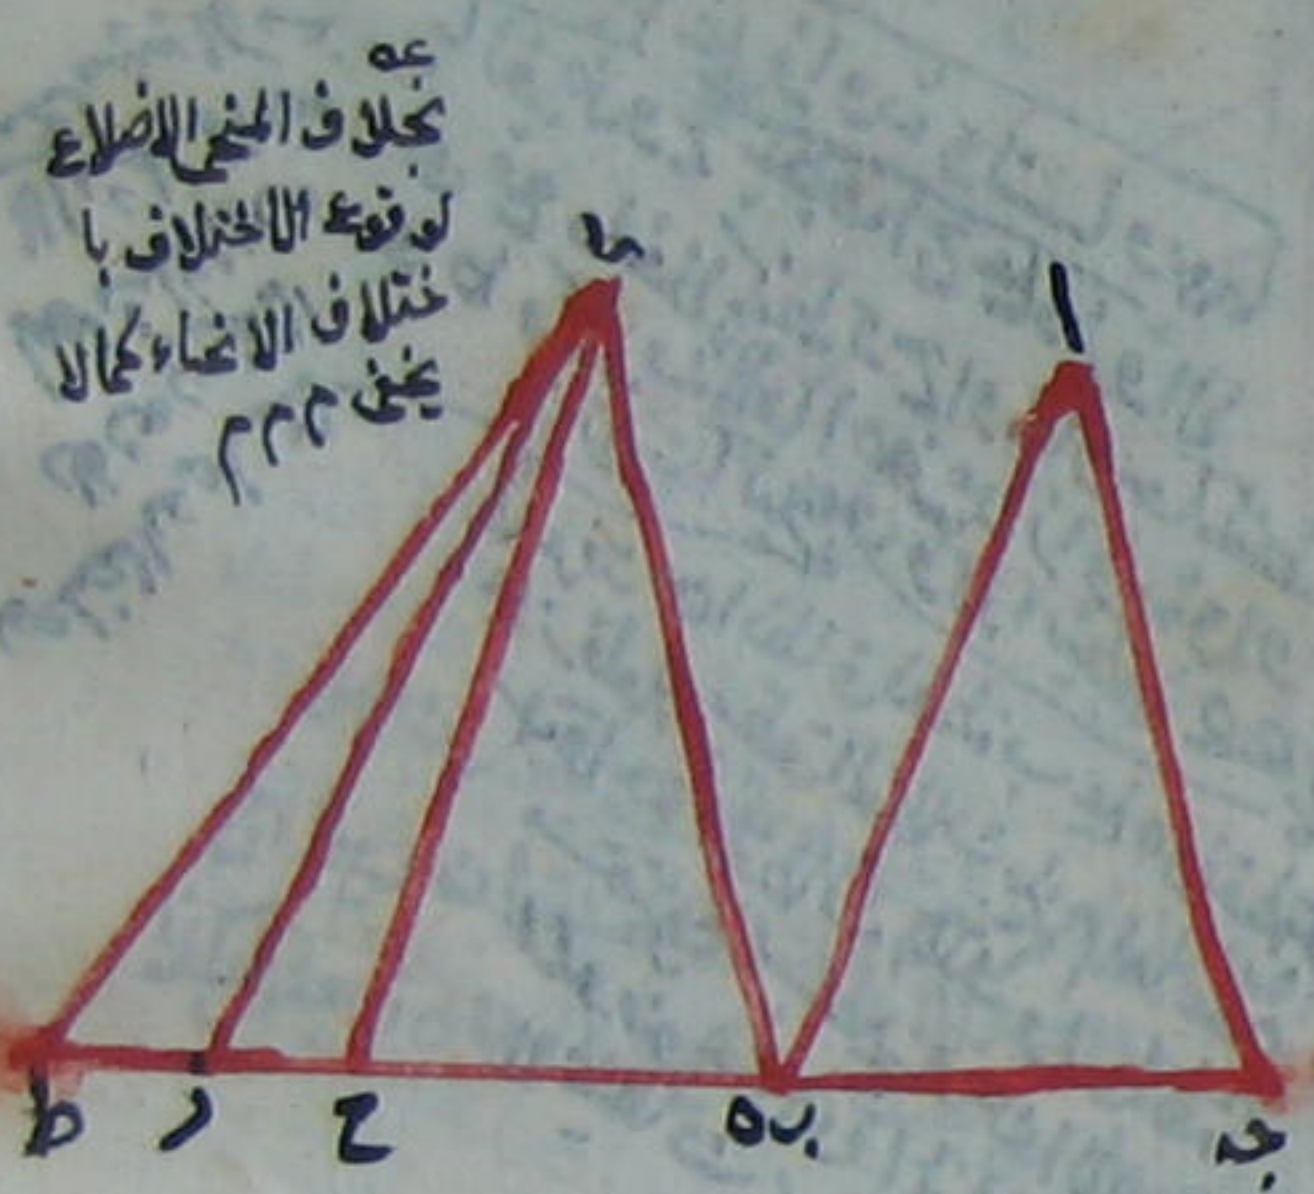 عه
بخلاف المنحى الاضلاع
لوقوع الاختلاف با
ختلاف الانحناء كما لا
يخفى م م م
ا
ط ر ح ب ه جـ